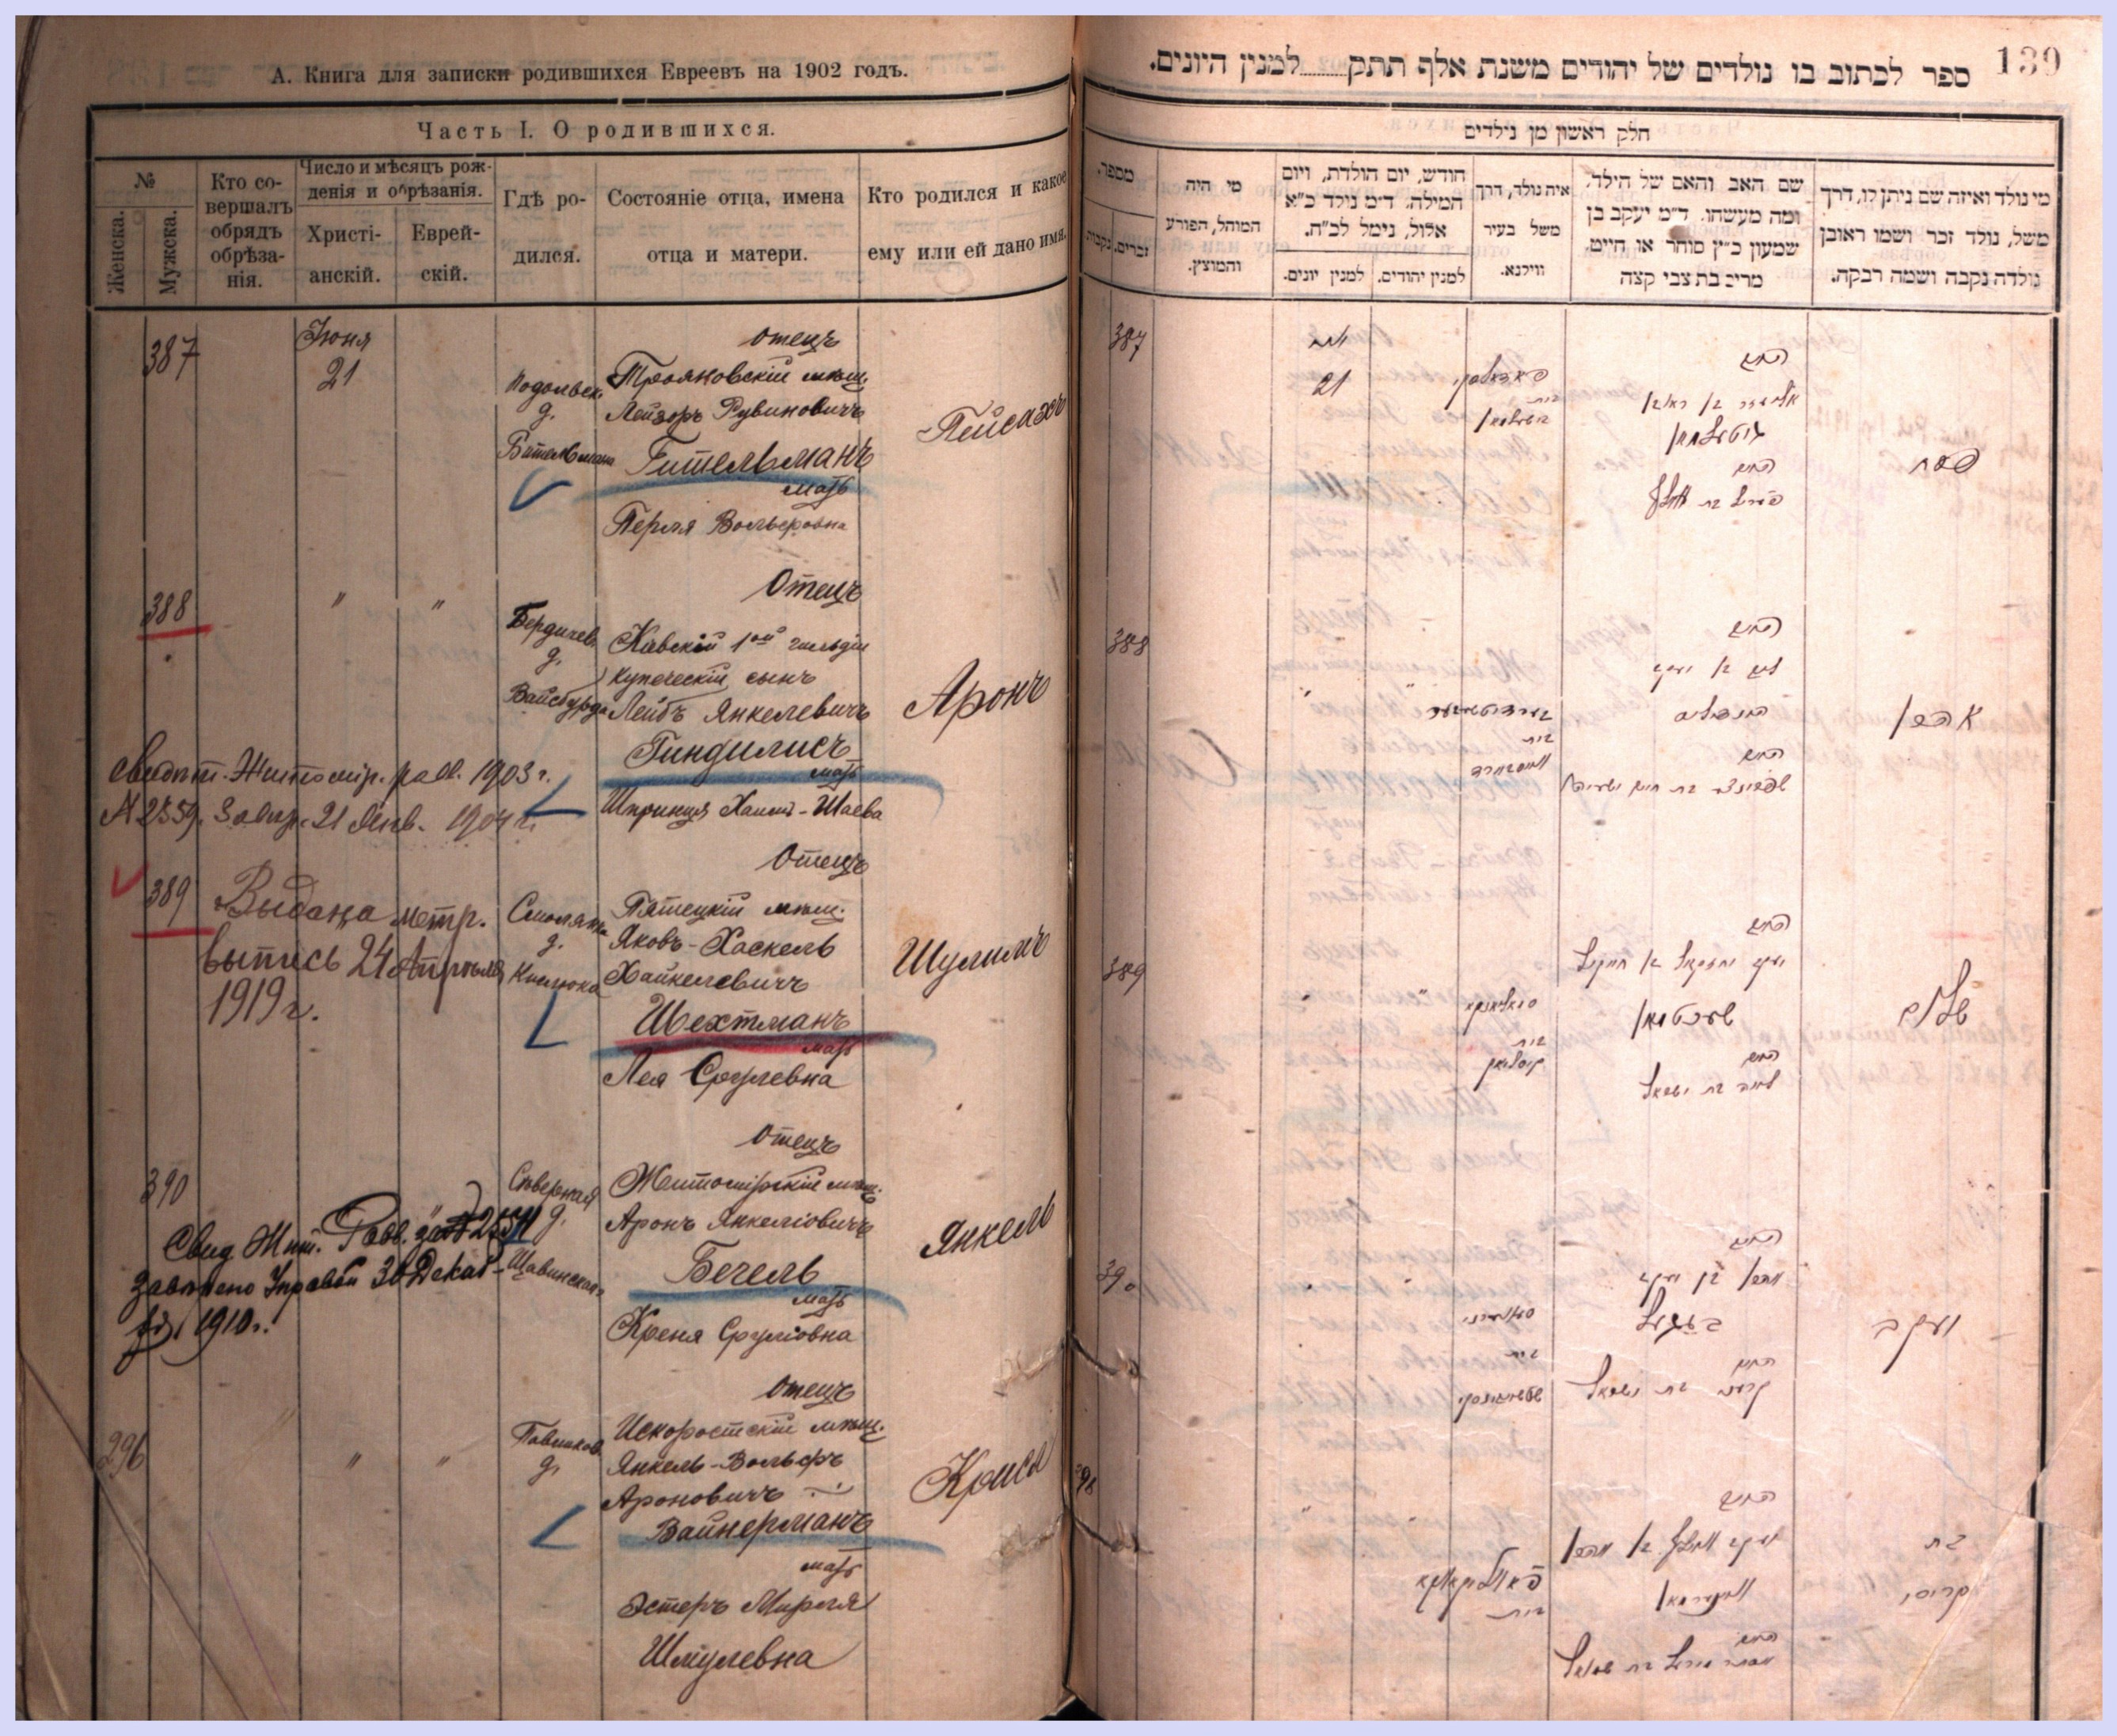 А. Книга для записки родившихся Евреевъ на 1902 годъ.
Часть I. О родившихся.
№
Женска.
Мужска.
Кто со-
вершалъ
обрядъ
обрѣза-
нія.
Число и мѣсяцъ рож-
денія и обрѣзанія.
Христі-
анскій.
Еврей-
скій.
Гдѣ ро-
дился.
Состояніе отца, имена
отца и матери.
Кто родился и какое
ему или ей дано имя.
387
Іюня
21
Подольск.
д.
отецъ
Трояновскій мѣщ.
Лейзоръ Рувиновичъ
Гительманъ
мать
Перля Вольфовна
Пейсахъ
388
"
"
Бердичев.
д.
Вайсбурда
Отецъ
Кіевскій 1ой гильдіи
купеческій сынъ
Лейбъ Янкелевичъ
Гиндилисъ
мать
Шпринця Хаимъ-Шаева
Аронъ
Свидѣт. Житомір. равв. 1903 г.
№ 2359. Завѣр. 21 Янв. 1904 г.
389
Выдана метр.
выпись 24 Апрѣля
1919 г.
Смолянка
д.
Отецъ
Пятецкій мѣщ.
Яковъ-Хаскель
Хайкелевичъ
Шехтманъ
мать
Лея Срулевна
Шулимъ
390
Свид Жит. Равв. за №
завѣрено Управой 30 Декаб-
1910 г.
Сѣверная
д.
отецъ
Житомірскій мѣщ.
Аронъ Янкеліовичъ
Бегель
мать
Креня Сруліовна
Янкель
296
"
"
Павликов.
д.
Отецъ
Искоростскій мѣщ.
Янкель-Вольфъ
Ароновичъ
Вайнерманъ
мать
Эстеръ Мирля
Шмулевна
Крися
139
ספר לכתוב בו נולדים של יהודים משנת אלף תתק......למנין היונים.
חלק ראשון מן נילדים
מספר.
זכרים.
נקבות
מי היה
המוהל, הפורע
והמוצץ.
חודש, יום הולדת, ויום
המילה. ד"מ נולד כ"א
אלול, נימל לכ"ח.
למנין יהודים.
למנין יונים.
איה נולד, דרך
משל בעיר
ווילנא.
שם האב והאם של הילד,
ומה מעשהו. ד"מ יעקב בן
שמעון כ"ץ סוחר או חייט,
מרים בת צבי קצה
מי נולד ואיזה שם ניתן לו, דרך
משל, נולד זכר ושמו ראובן
נולדה נקבה ושמה רבקה.
387
21
האב
אליעזר בן ראובן
גיטעלמאן
האם
פערל בת וואלף
פסח
388
האב
ליב בן יעקב
האם
שפרינצע בת חיים ישעיהו
אהרן
389
האב
יעקב יחזקאל בן חייקיל
שעכטמאן
האם
לאה בת ישראל
שלום
390
האב
אהרן בן יעקב
בעגעל
האם
קרענע בת ישראל
יעקב
האב
יעקב וואלף בן אהרן
וויינערמאן
האם
אסתר מירל בת שמואל
בת
קריסי